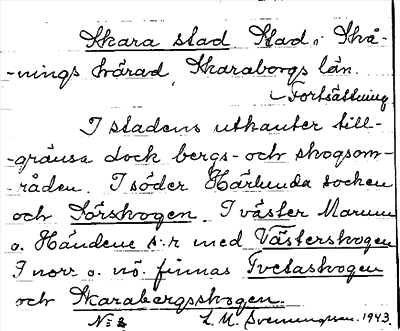 Skara stad. Stad i Skå-
-nings härad, Skaraborgs län.
Fortsättning
I stadens utkanter till-
-gränsa dock bergs- och skogsom-
-råden. I söder Härlunda socken
och Sörskogen. I väster Marum
o. Händene s:r med Västerskogen
I norr o. nö. finnas Tvetaskogen
och Skarabergsskogen.
No 2 L. M. Svenungsson. 1943.